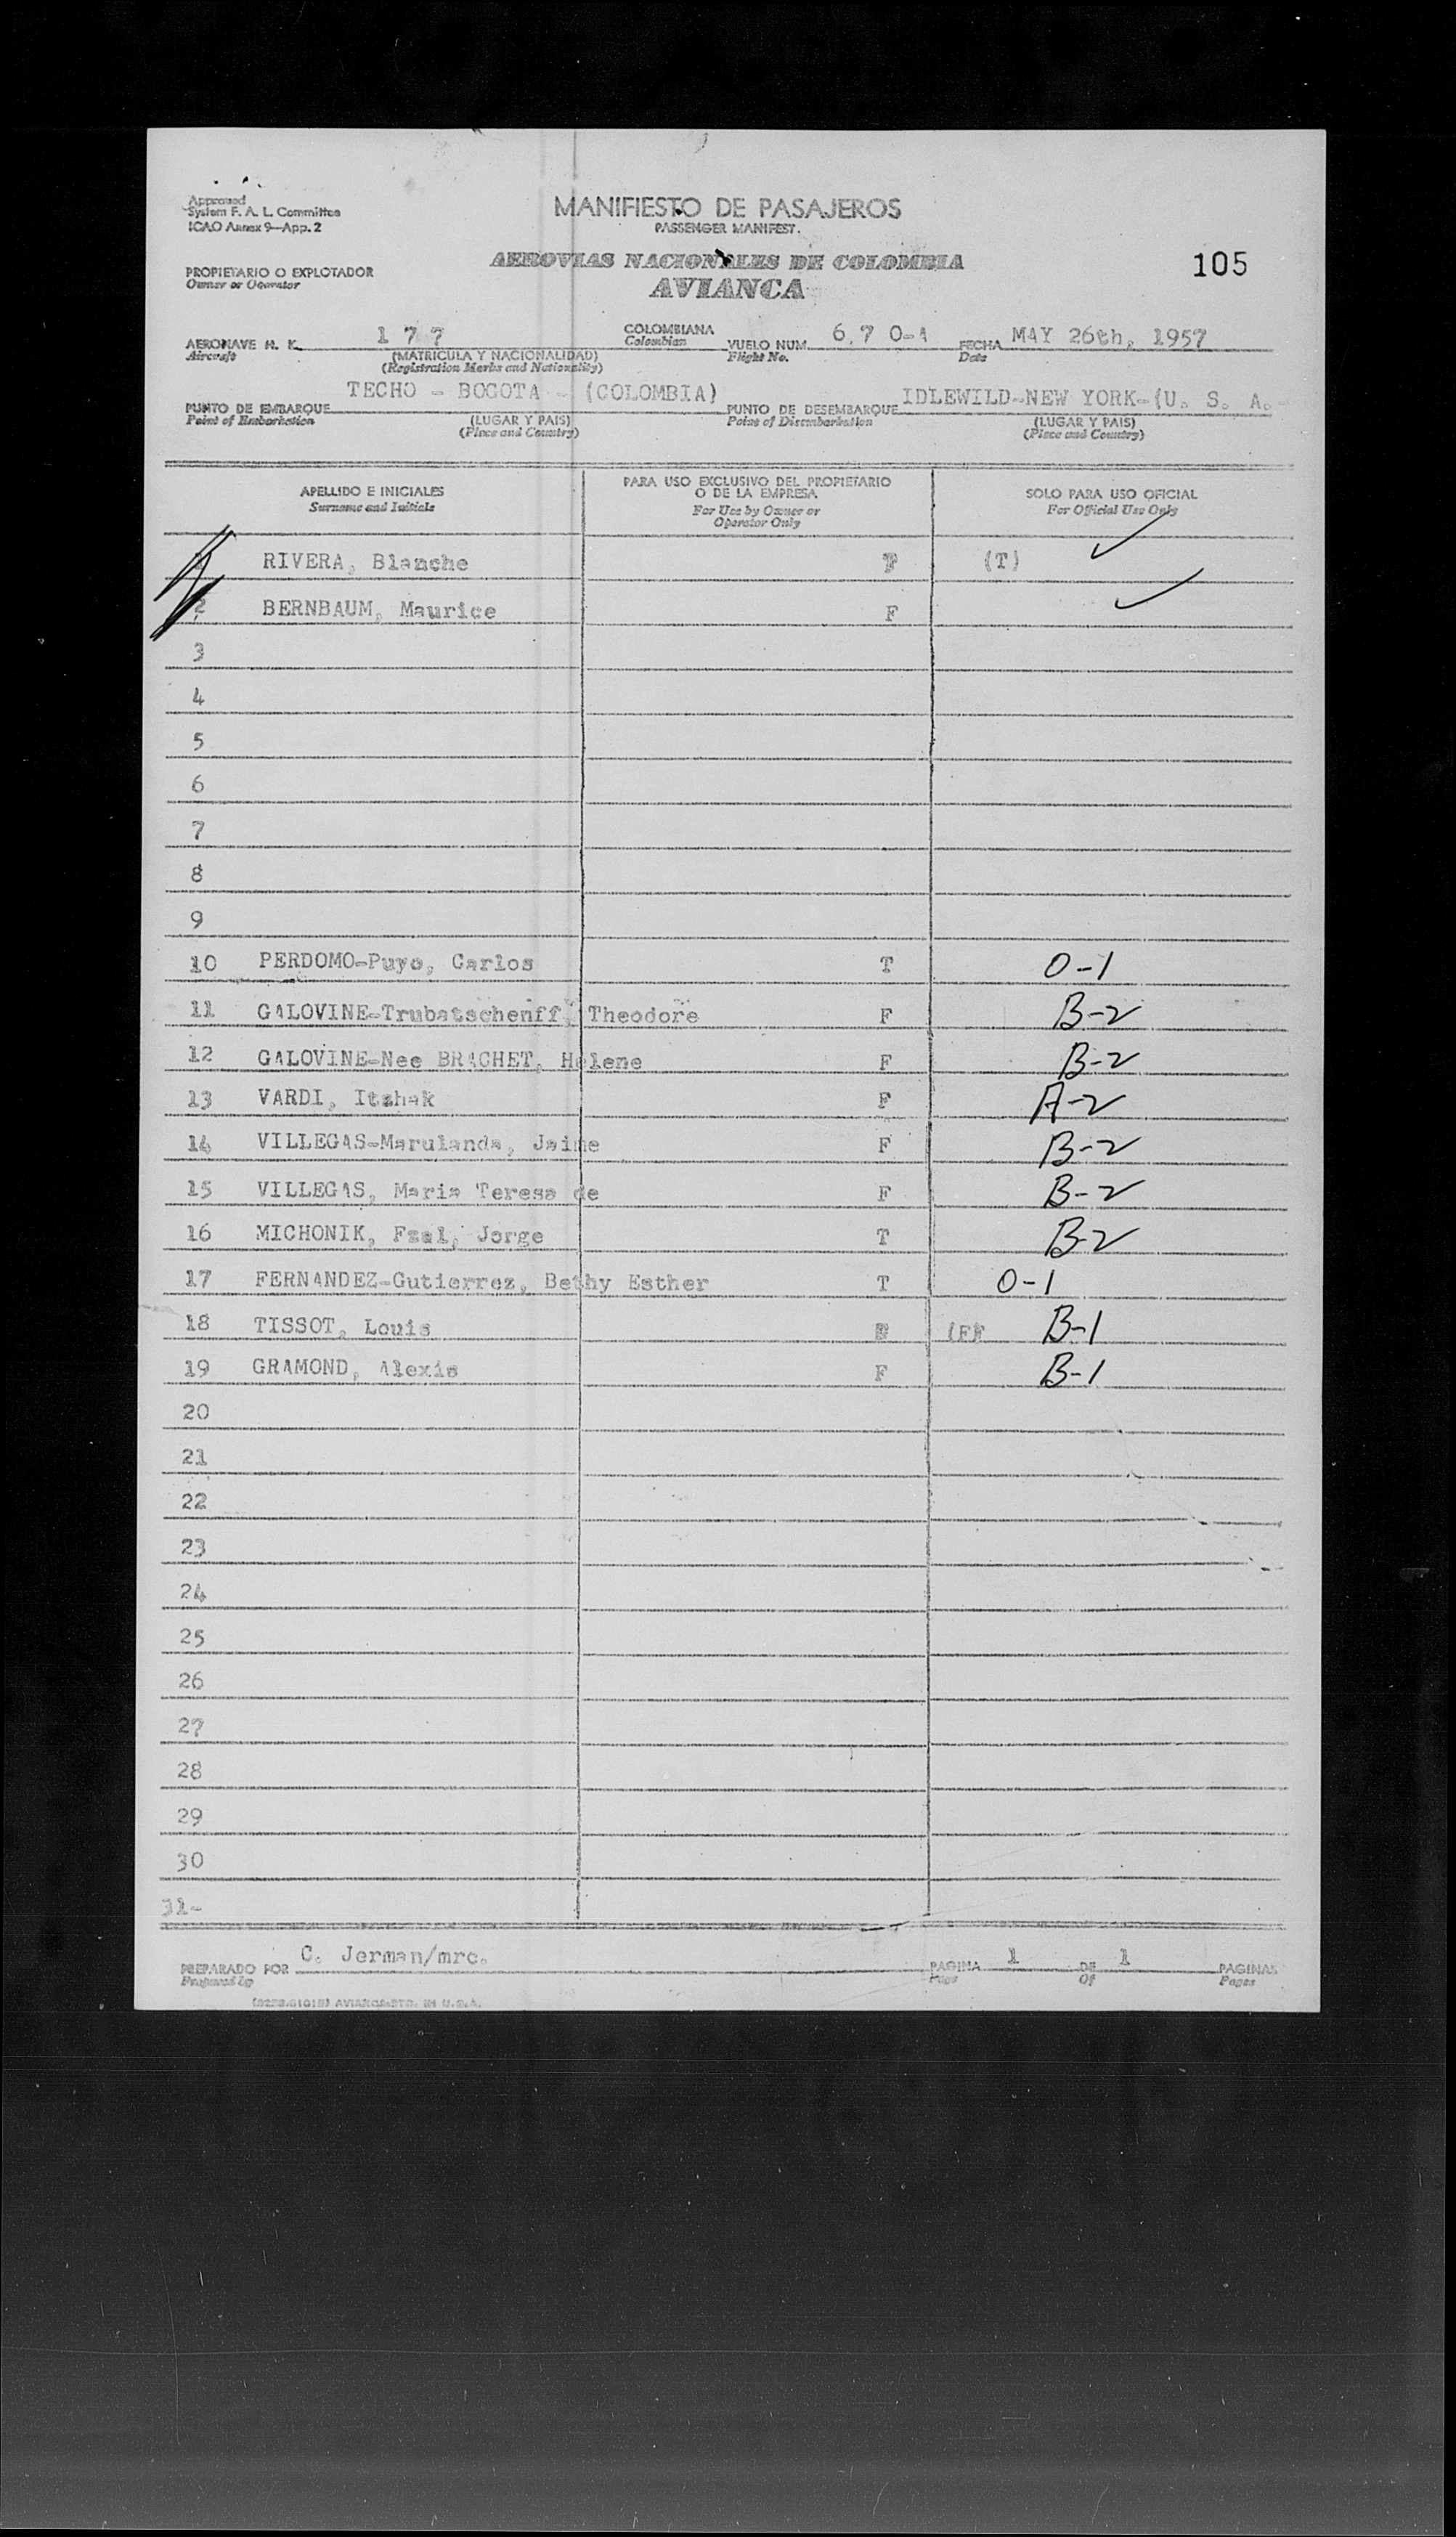 Approved
System F. A. L. Committee
ICAO Annex 9—App. 2
MANIFIESTO DE PASAJEROS
PASSENGER MANIFEST.
AEROVIAS NACIONALES DE COLOMBIA
AVIANCA
105
PROPIETARIO O EXPLOTADOR
Owner or Operator
AERONAVE H. K. 177 COLOMBIANA VUELO NUM. 6.70-A FECHA MAY 26th, 1957
Aircraft (MATRICULA Y NACIONALIDAD) Colombian Flight No. Date
(Registration Marks and Nationality)
PUNTO DE EMBARQUE TECHO - BOGOTA - (COLOMBIA) PUNTO DE DESEMBARQUE IDLEWILD-NEW YORK-(U. S. A.
Point of Embarkation (LUGAR Y PAIS) Point of Disembarkation (LUGAR Y PAIS)
(Place and Country) (Place and Country)
APELLIDO E INICIALES PARA USO EXCLUSIVO DEL PROPIETARIO O DE LA EMPRESA SOLO PARA USO OFICIAL
Surname and Initials For Use by Owner or Operator Only For Official Use Only
RIVERA, Blanche (T)
2 BERNBAUM, Maurice F
3
4
5
6
7
8
9
10 PERDOMO-Puyo, Carlos T O-1
11 GALOVINE-Trubatschenff, Theodore F B-2
12 GALOVINE-Nee BRACHET, Helene F B-2
13 VARDI, Itzhak F A-2
14 VILLEGAS-Marulanda, Jaime F B-2
15 VILLEGAS, Maria Teresa de F B-2
16 MICHONIK, Jorge T B-2
17 FERNANDEZ-Gutierrez, Bethy Esther T O-1
18 TISSOT, Louis (F) B-1
19 GRAMOND, Alexis F B-1
20
21
22
23
24
25
26
27
28
29
30
31-
PREPARADO POR C. Jerman/mrc. PAGINA 1 DE 1 PAGINAS
Prepared by Page Of Pages